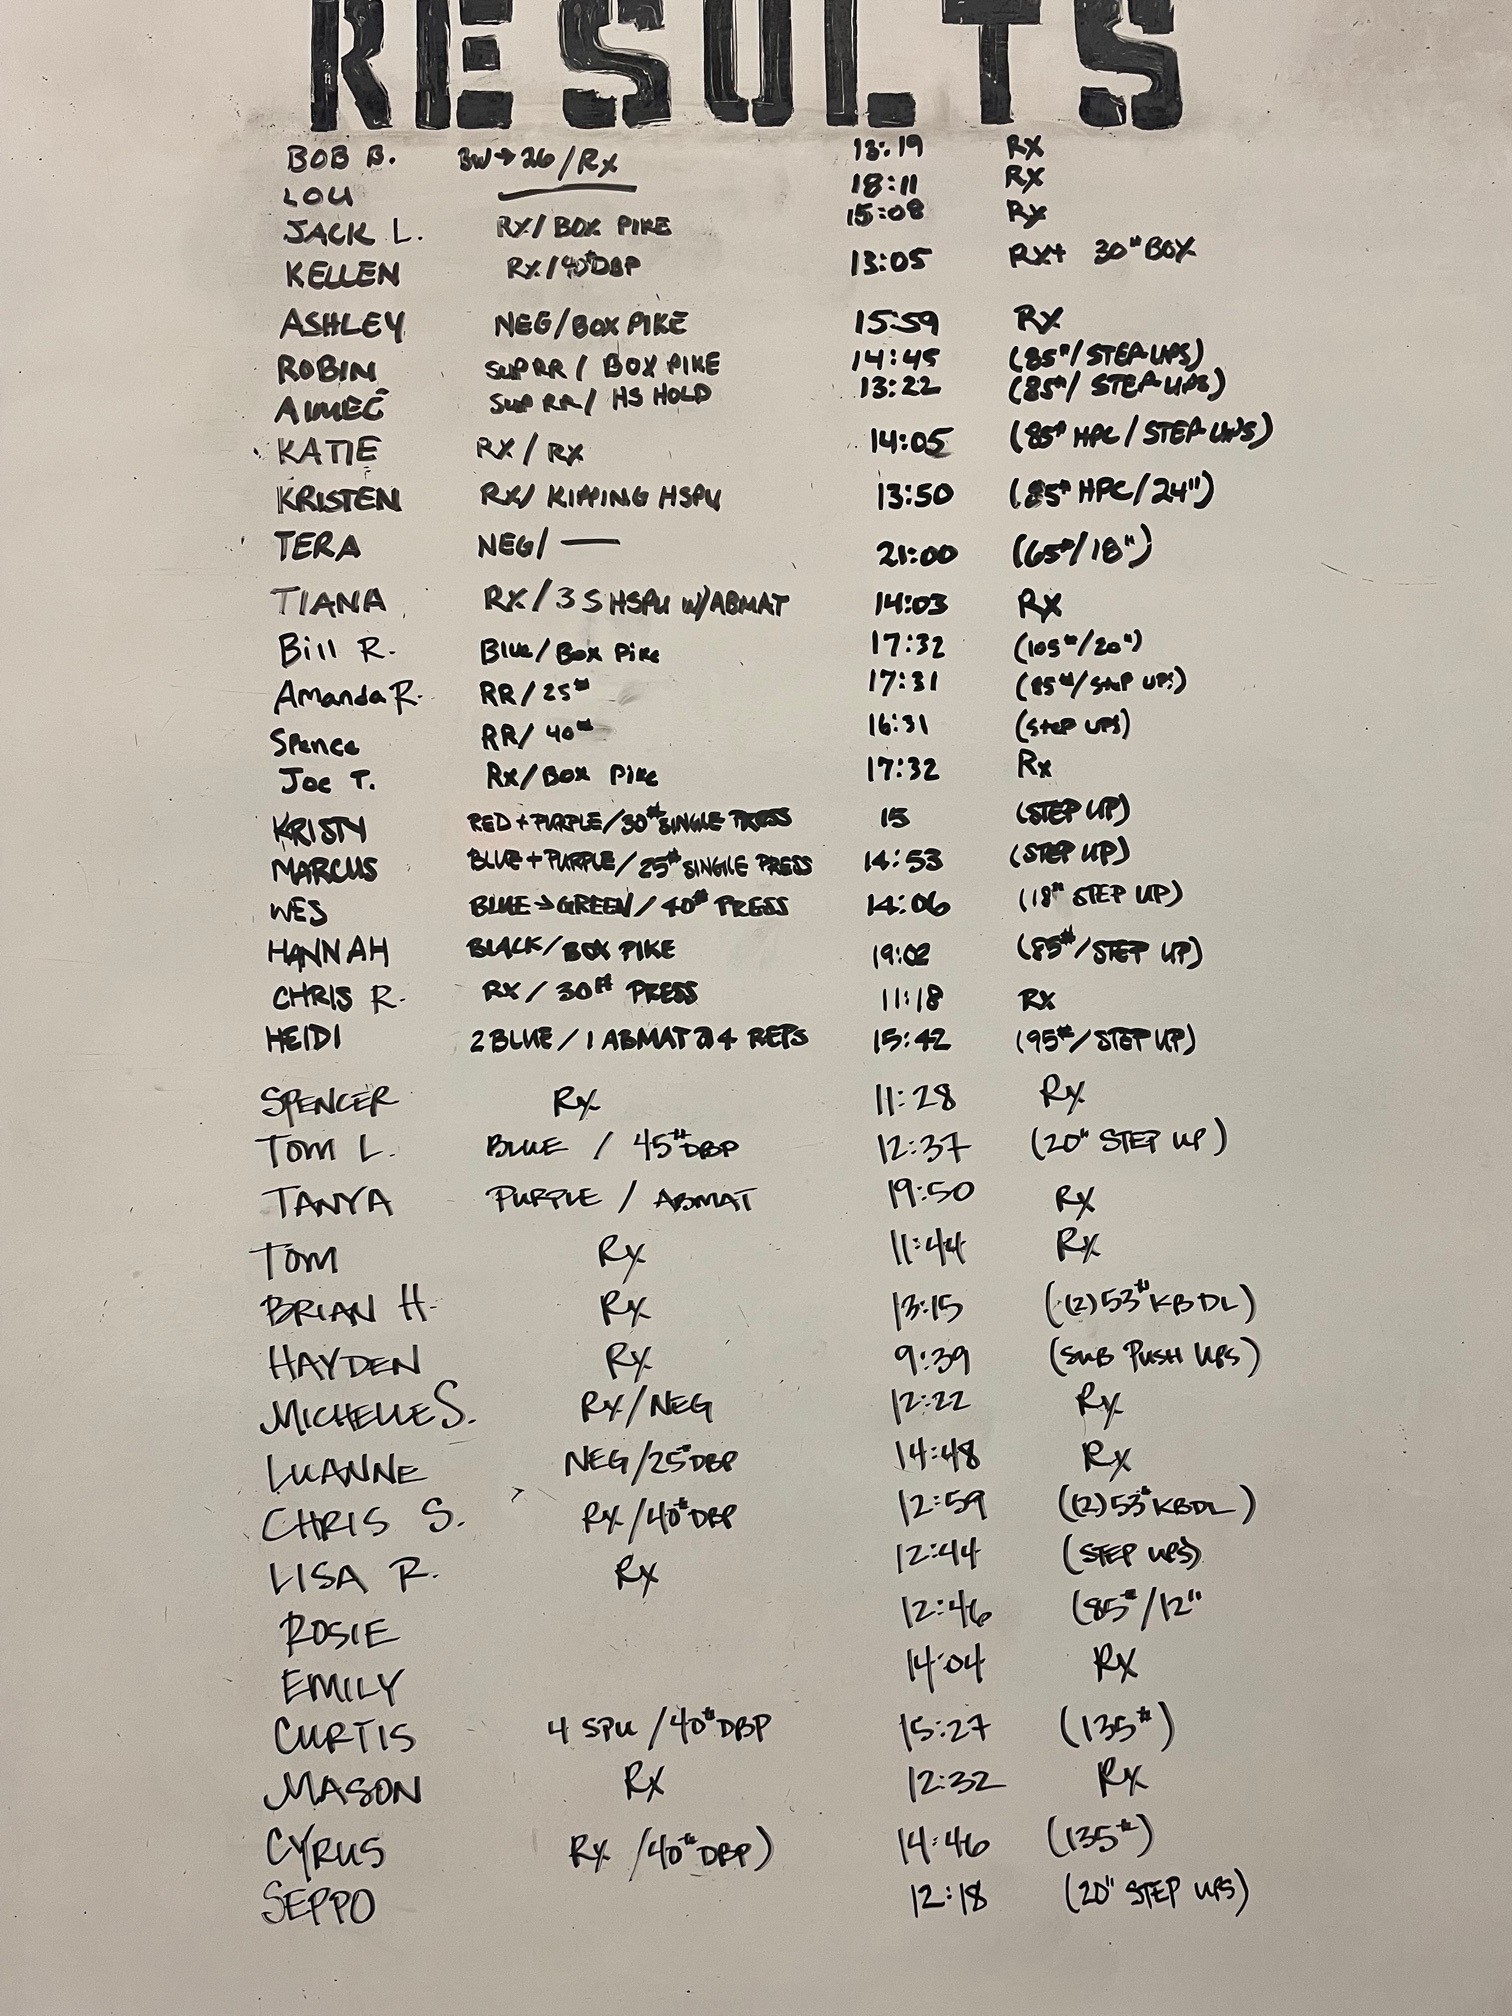 RESULTS
BOB B. BW→26/RX 13:19 RX
LOU 18:11 RX
JACK L. RX/BOX PIKE 15:08 RX
KELLEN RX/40#DBP 13:05 RX+ 30"BOX
ASHLEY NEG/BOX PIKE 15:59 RX
ROBIN SUP RR/ BOX PIKE 14:45 (85#/STEP UPS)
AIMEE SUP RR/ HS HOLD 13:22 (85#/ STEP UPS)
KATIE RX/RX 14:05 (85# HPC/STEP UPS)
KRISTEN RX/ KIPPING HSPU 13:50 (85# HPC/24")
TERA NEG/ — 21:00 (65#/18")
TIANA RX/3 S HSPU W/ABMAT 14:03 RX
Bill R. Blue/Box Pike 17:32 (105#/20")
Amanda R. RR/25# 17:31 (85#/step ups)
Spence RR/ 40# 16:31 (step ups)
Joe T. Rx/Box Pike 17:32 Rx
KRISTY RED+PURPLE/30#SINGLE PRESS 15 (STEP UP)
MARCUS BLUE+PURPLE/25# SINGLE PRESS 14:53 (STEP UP)
WES BLUE→GREEN/40# PRESS 14:06 (18" STEP UP)
HANNAH BLACK/BOX PIKE 19:02 (85#/STEP UP)
CHRIS R. RX/30# PRESS 11:18 RX
HEIDI 2 BLUE/1 ABMAT @ 4 REPS 15:42 (95#/STEP UP)
SPENCER RX 11:28 RX
TOM L. BLUE / 45#DBP 12:37 (20" STEP UP)
TANYA PURPLE / ABMAT 19:50 RX
TOM RX 11:44 RX
BRIAN H. RX 13:15 ((2)53#KBDL)
HAYDEN RX 9:39 (SUB PUSH UPS)
MICHELLE S. RX/NEG 12:22 RX
LUANNE NEG/25#DBP 14:48 RX
CHRIS S. RX/40#DBP 12:59 ((2)53#KBDL)
LISA R. RX 12:44 (STEP UPS)
ROSIE 12:46 (85#/12"
EMILY 14:04 RX
CURTIS 4 SPU /40#DBP 15:27 (135#)
MASON RX 12:32 RX
CYRUS RX /40#DBP) 14:46 (135#)
SEPPO 12:18 (20" STEP UPS)